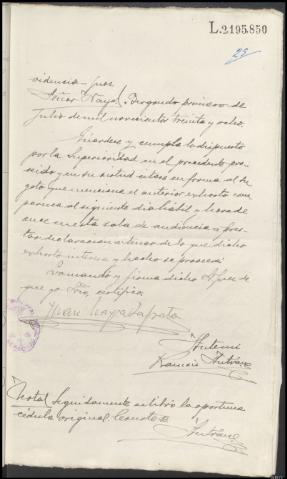 L.2195.850
25
videncia = Juez
Señor Naya. Bergondo primero de
Julio de mil novecientos treinta y ocho.
Guárdese y cumpla lo dispuesto
por la Superioridad en el precedente
y en su virtud cítese en forma al
que menciona el anterior exhorto
comparezca al siguiente día hábil y hora de
en esta sala de audiencia a pres-
tar declaración a tenor de lo que dicho
exhorto interesa y hecho se proveerá
Lo mando y firma dicho Sr. Juez de
que yo Srio. certifico.
Juan Naya Zapata
Antemi
Ramón
Nota/ Seguidamente se libró la oportuna
cédula original. Conste